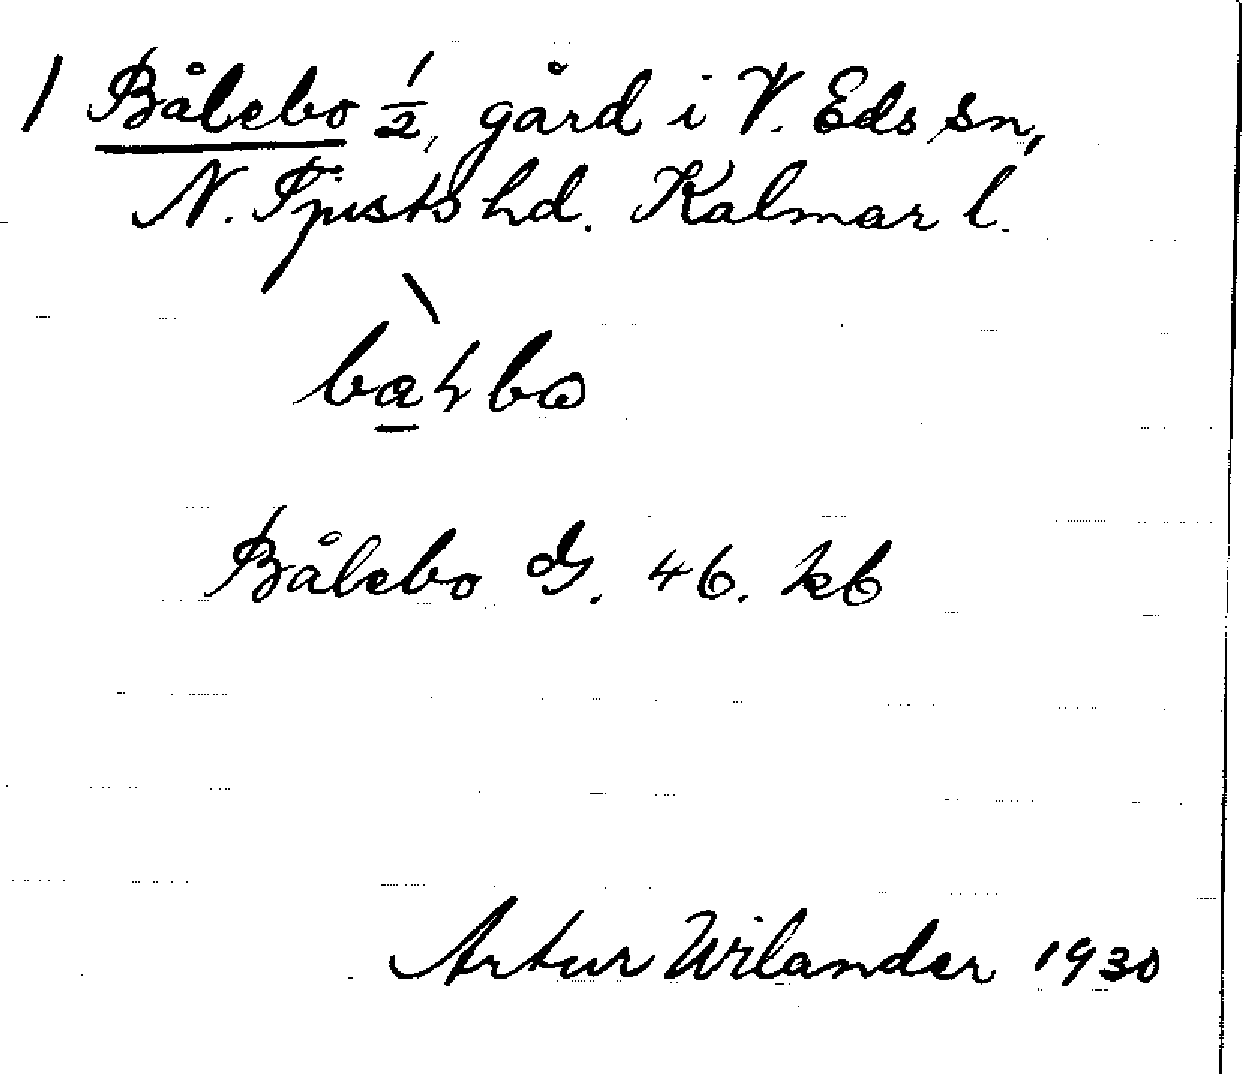 1 Bålebo 1/2, gård i V. Eds sn,
N. Tjusts hd. Kalmar l.
Bålebo G. 46. kb
Artur Wilander 1930